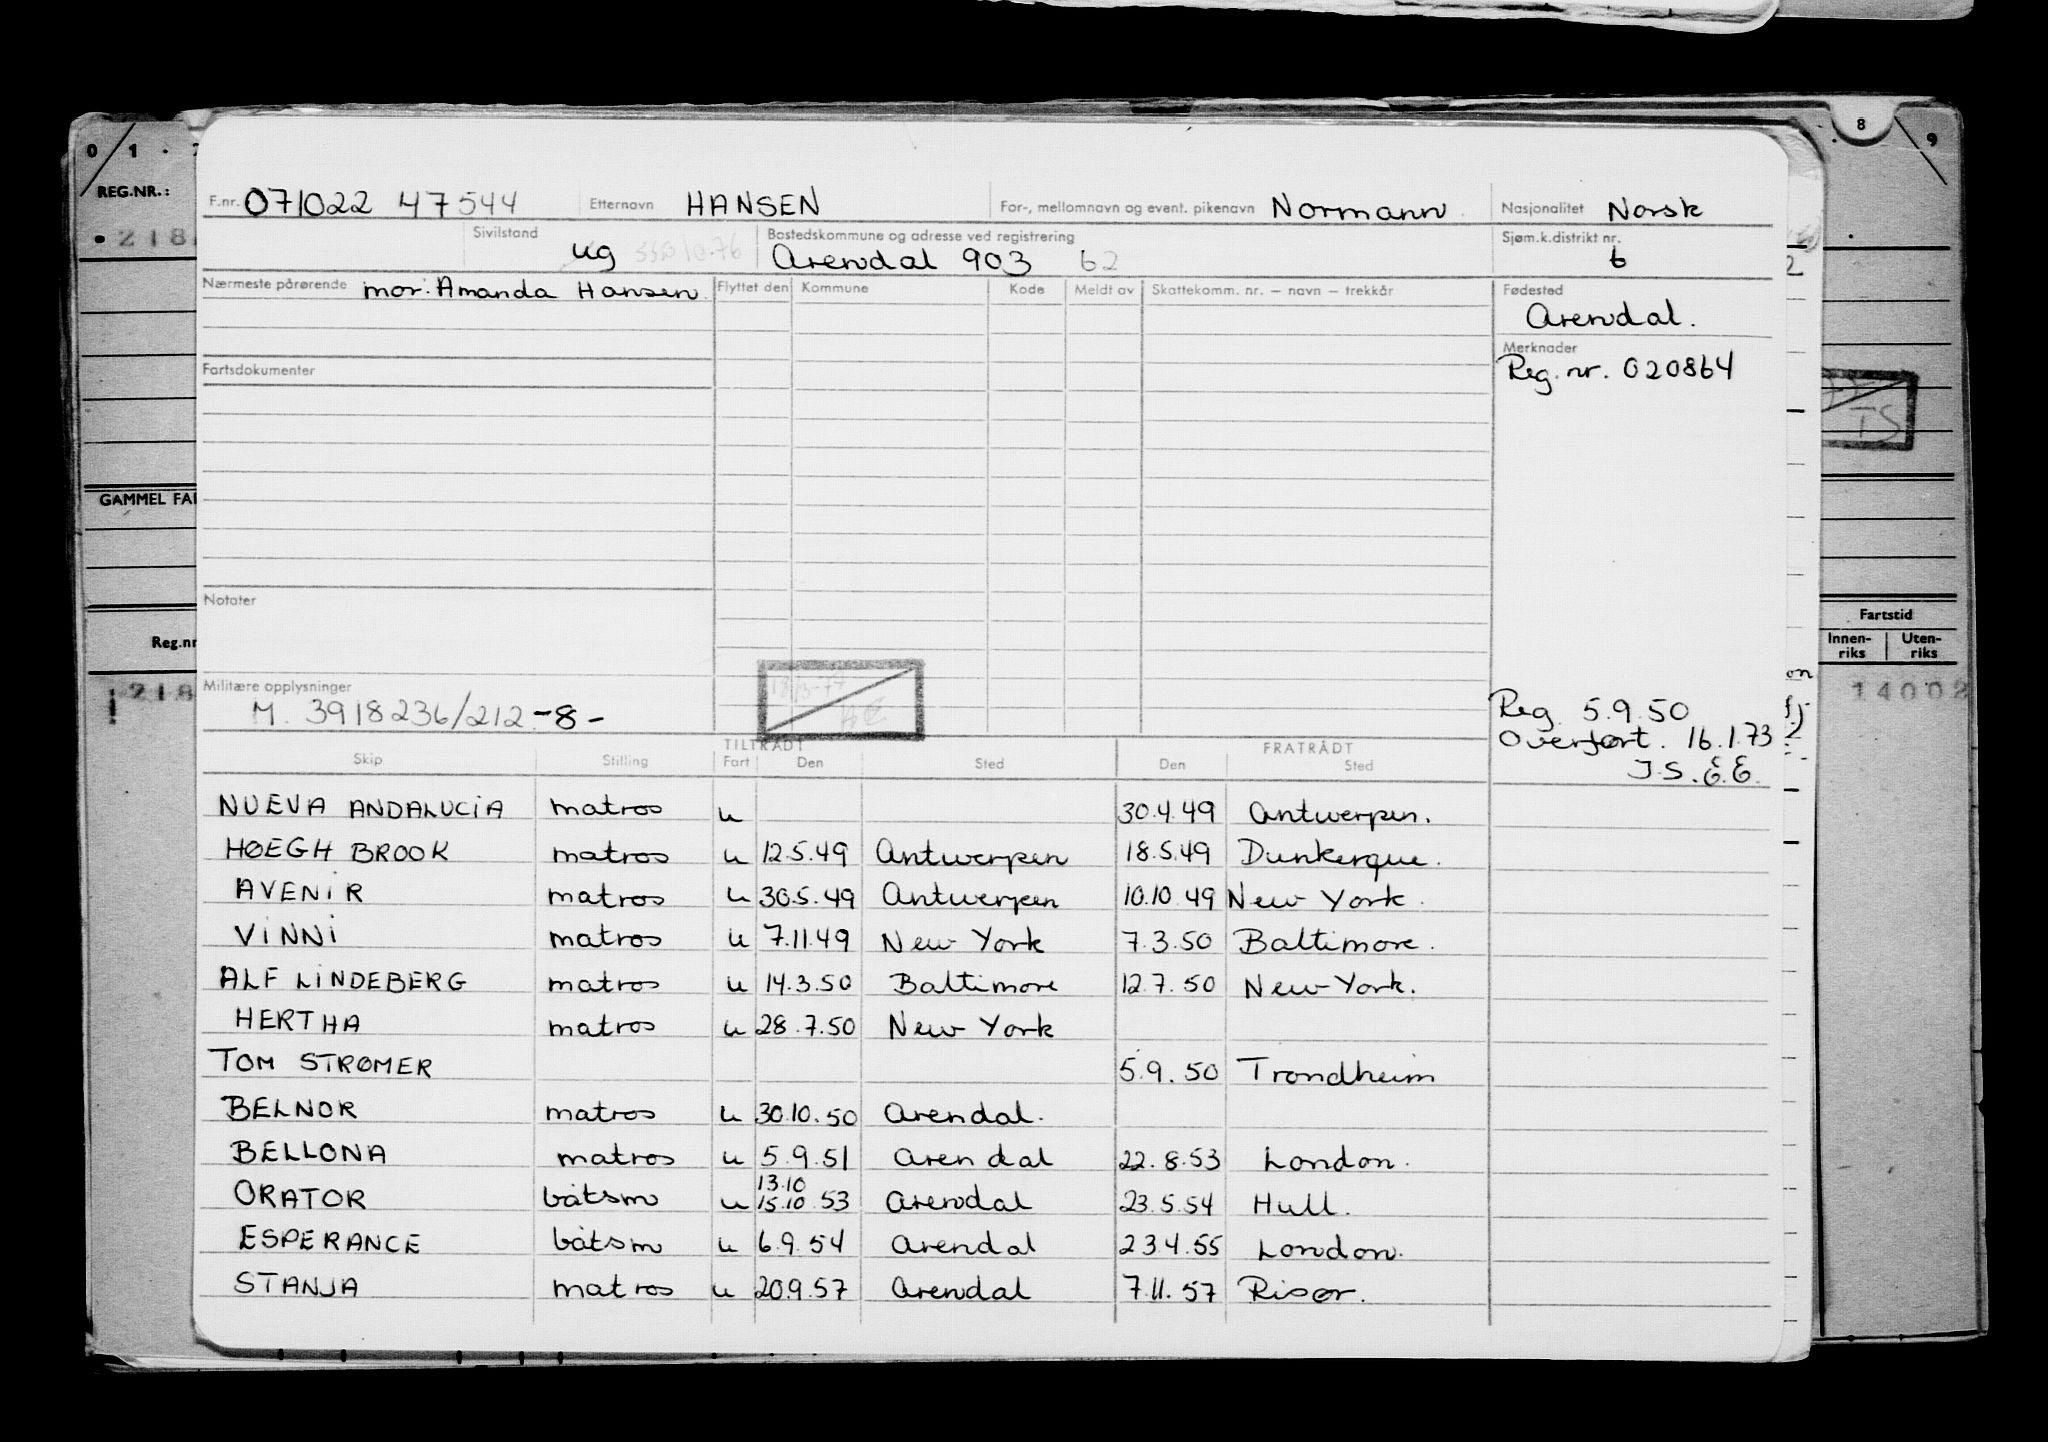 0 / 1 · 8 9
REG.NR.:
• 218
GAMMEL FA
Reg.nr
218
Fartstid
Innen-riks Uten-riks
14002
TS
F.nr. 071022 47544 Etternavn HANSEN For-, mellomnavn og event. pikenavn Normann Nasjonalitet Norsk
Sivilstand ug Bostedskommune og adresse ved registrering Arendal 903 62 Sjøm.k.distrikt nr. 6
Nærmeste pårørende mor: Amanda Hansen. Flyttet den Kommune Kode Meldt av Skattekomm. nr. – navn – trekkår Fødested
Arendal.
Merknader
Fartsdokumenter Reg. nr. 020864
Notater
Militære opplysninger
M. 3918236/212-8- Reg. 5.9.50
Overført. 16.1.73
J.S. E.E.
TILTRÅDT FRATRÅDT
Skip Stilling Fart Den Sted Den Sted
NUEVA ANDALUCIA matros u 30.4.49 Antwerpen.
HØEGH BROOK matros u 12.5.49 Antwerpen 18.5.49 Dunkerque.
AVENIR matros u 30.5.49 Antwerpen 10.10.49 New York.
VINNI matros u 7.11.49 New York 7.3.50 Baltimore.
ALF LINDEBERG matros u 14.3.50 Baltimore 12.7.50 New York.
HERTHA matros u 28.7.50 New York
TOM STRØMER 5.9.50 Trondheim
BELNOR matros u 30.10.50 Arendal.
BELLONA matros u 5.9.51 Arendal 22.8.53 London.
13.10
ORATOR båtsm u 15.10.53 Arendal 23.5.54 Hull.
ESPERANCE båtsm u 6.9.54 Arendal 23.4.55 London.
STANJA matros u 20.9.57 Arendal 7.11.57 Risør.